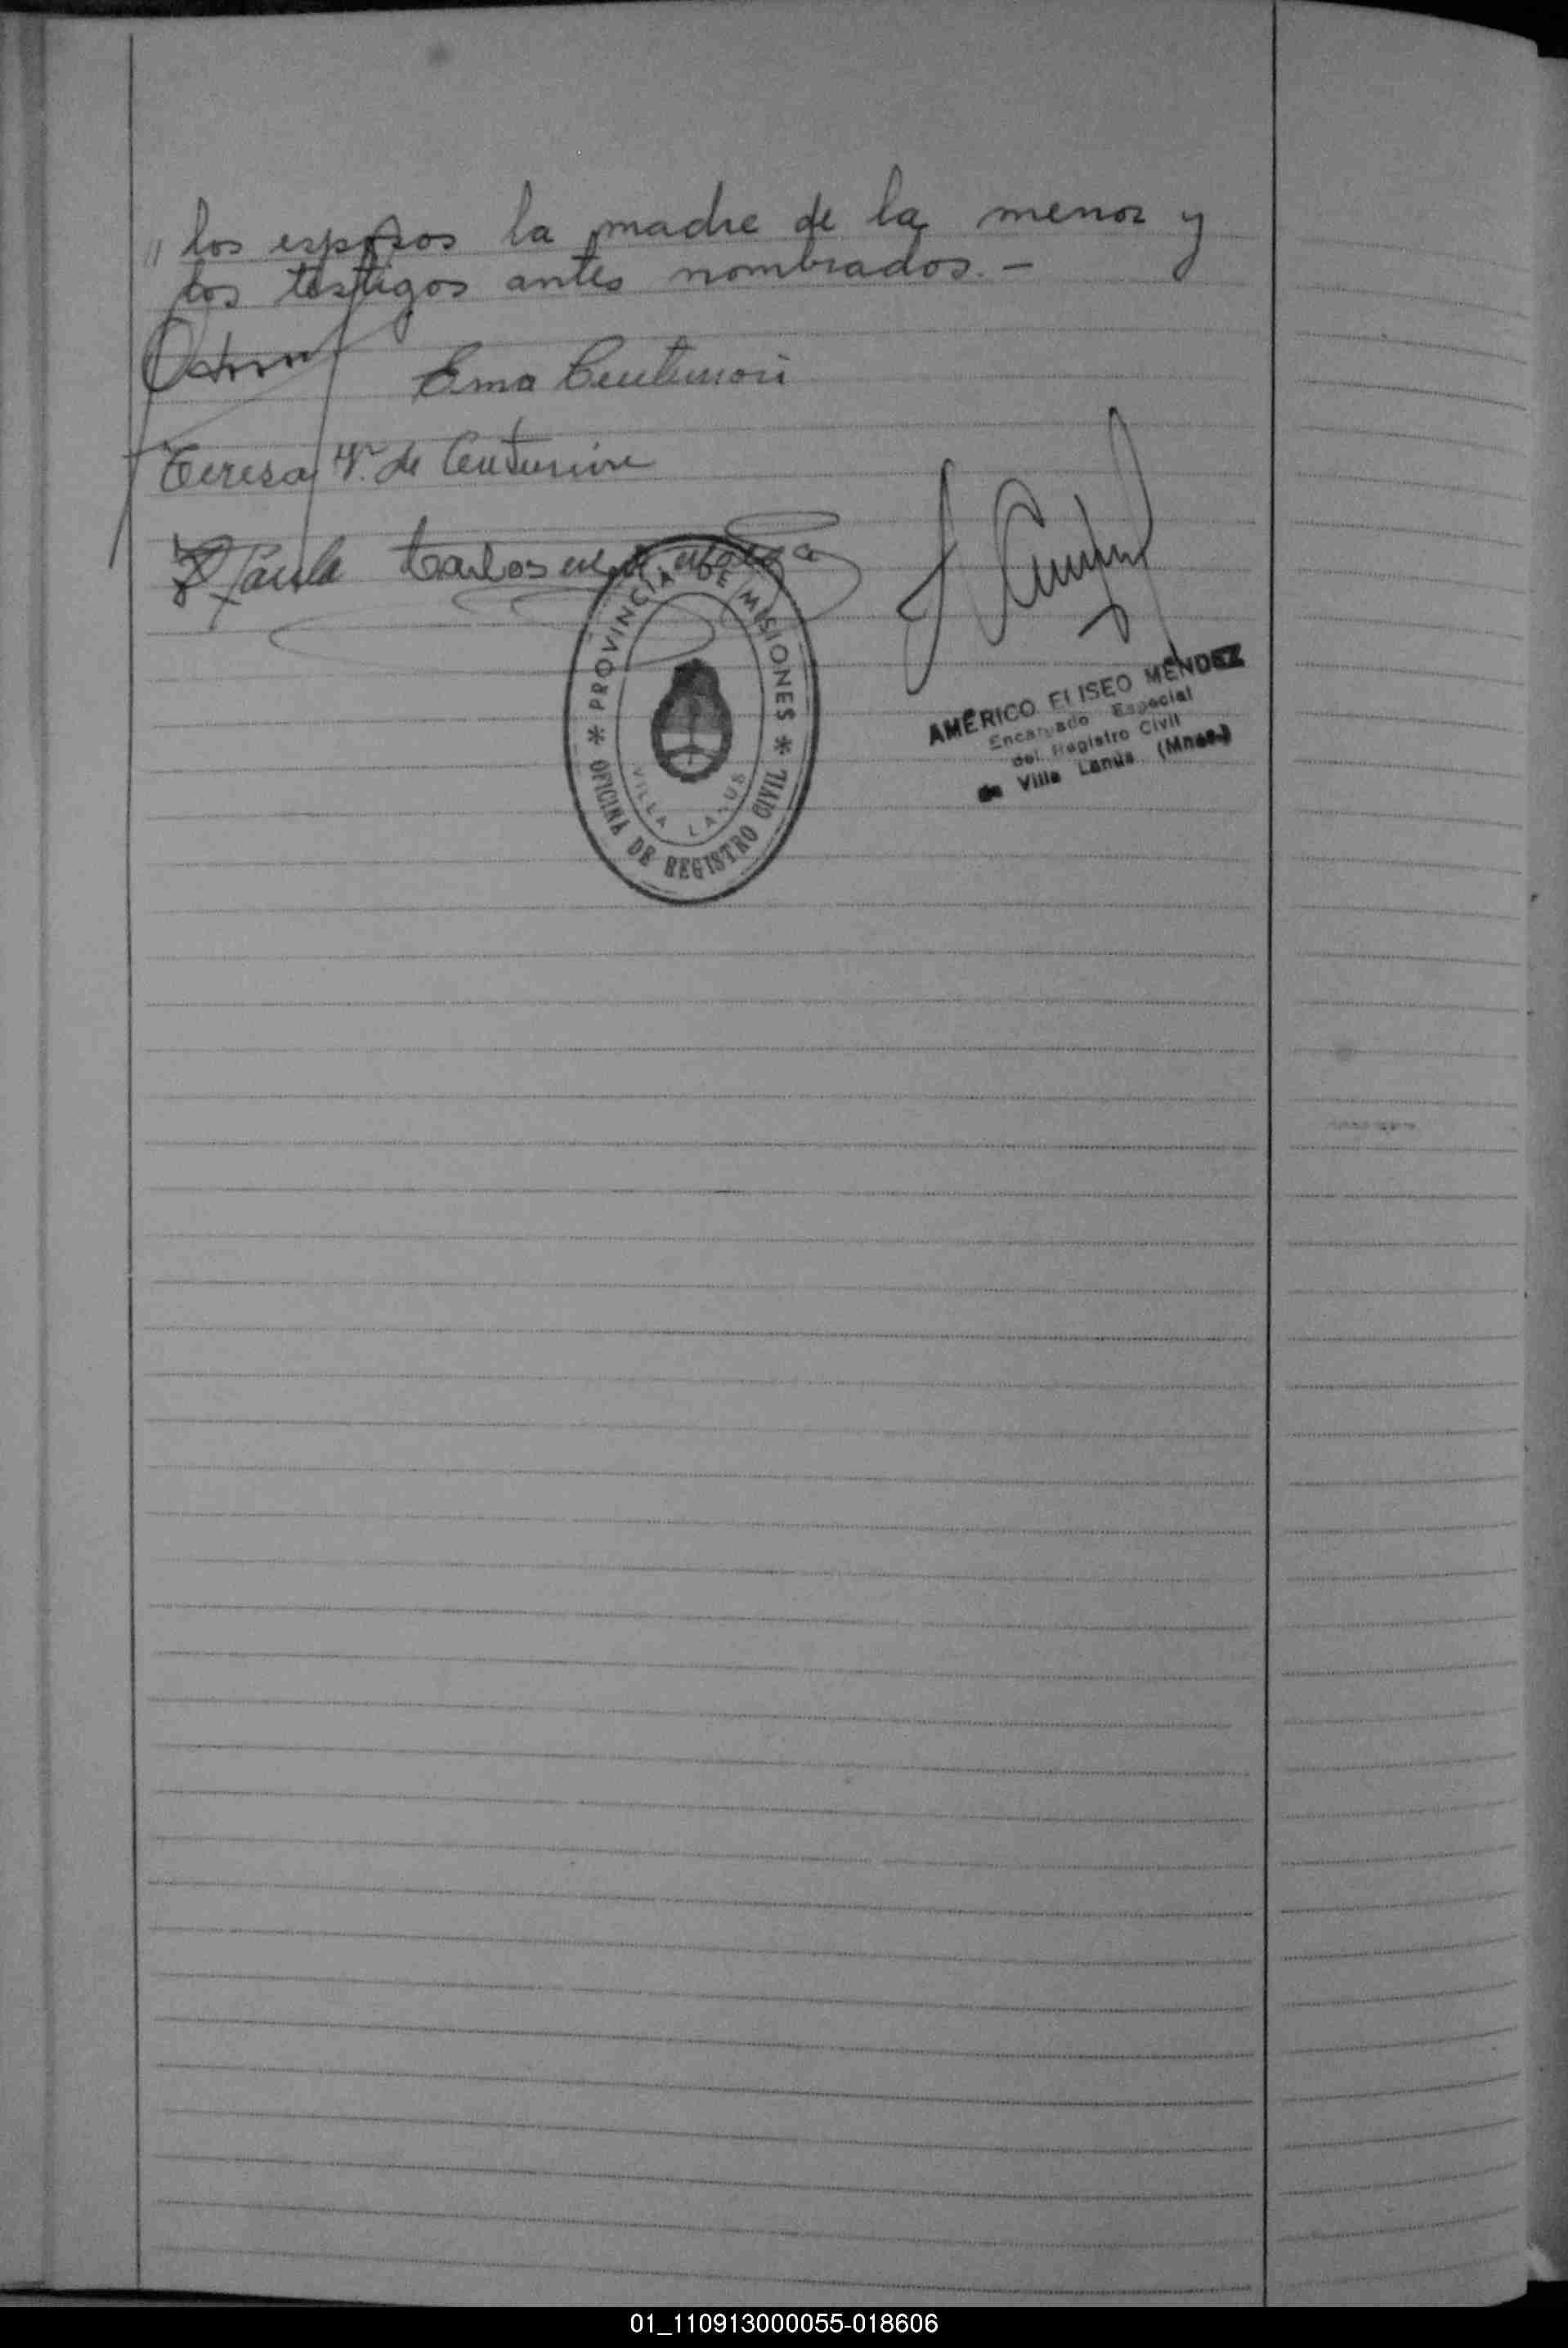 " los esposos la madre de la menor y
los testigos antes nombrados. -
Ema Centurión
Teresa V. de Centurión
Carlos
PROVINCIA DE MISIONES
OFICINA DE REGISTRO CIVIL
VILLA LANUS
AMÉRICO ELISEO MÉNDEZ
Encargado Especial
del Registro Civil
de Villa Lanús (Mnes.)
01_110913000055-018606